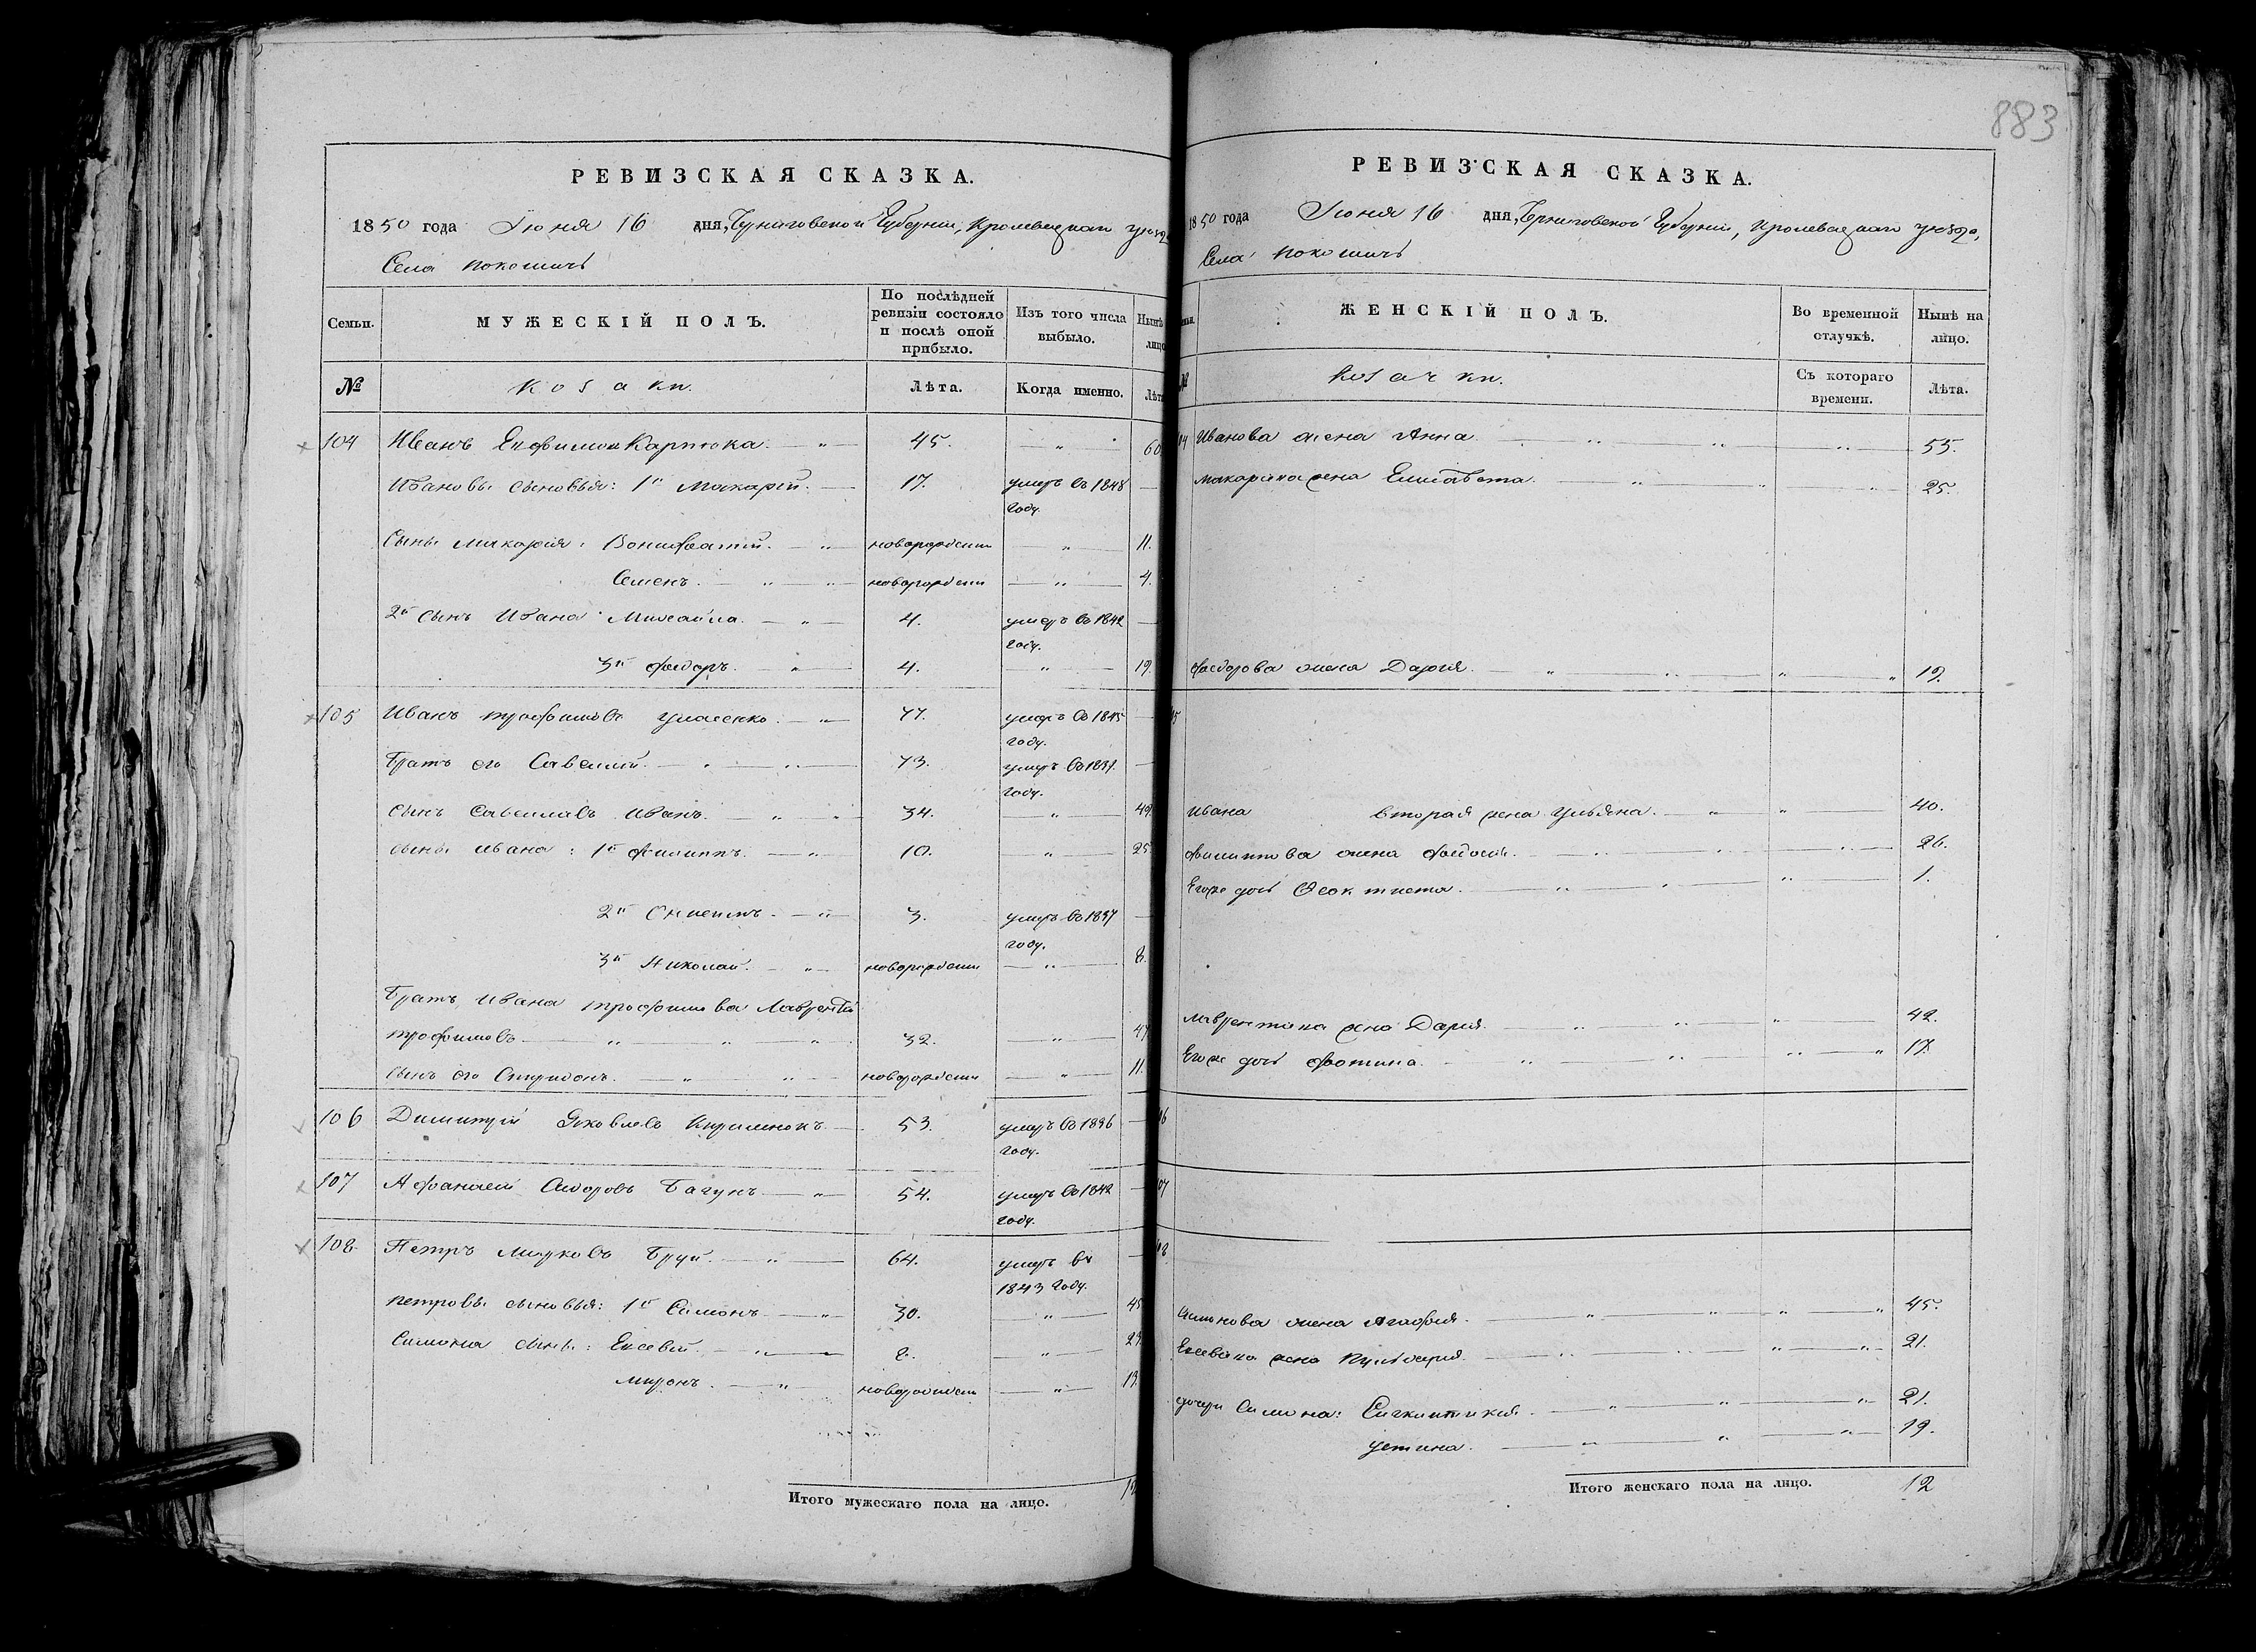 883
РЕВИЗСКАЯ СКАЗКА.
1850 года Июня 16 дня, Черниговской Губерніи, Кролевецкаго уезда
Села Покошичь
Семьи.
МУЖЕСКІЙ ПОЛЪ.
По послѣдней ревизіи состояло и послѣ оной прибыло.
Изъ того числа выбыло.
Нынѣ лицо
№
Козаки.
Лѣта.
Когда именно.
Лѣта
104 Иванъ Евфимовъ Карпека 45. 60
Ивановы сыновья: 1й Макарій. 17. умеръ въ 1848
году.
Сыны Макарія: Вонифатій. новорожденн 11.
Семенъ. новорожденн 4.
2й сынъ Ивана Михайла. 4. умеръ во 1842
году.
3й Федоръ. 4. 19.
105 Иванъ Трофимовъ 77. умеръ во 1845
году.
Братъ его Савелий. 73. умеръ во 1837.
году.
Сынъ Савелиевъ Иванъ. 34. 49.
Сыны Ивана: 1й Филиппъ. 10. 25
2й Осипъ. 3. умеръ во 1837
году.
3й Николай. новорожденн 8.
Братъ Ивана Трофимова Лаврентій
Трофимовъ 32. 47
Сынъ его Спиридонъ. новорожденн 11.
106 Димитрій Яковлевъ 53. умеръ во 1836
году.
107 Афанасій Сидоровъ Багунъ 54. умеръ во 1842
году.
108 Петръ Марковъ Бруй. 64. умеръ въ
1843 году.
Петровы сыновья: 1й Симонъ 30. 45
Симона сыны: Евсевій 8. 23
Миронъ. новорожденн 13.
Итого мужескаго пола на лицо. 12
РЕВИЗСКАЯ СКАЗКА.
1850 года Июня 16 дня, Черниговской Губерніи, Кролевецкаго уезда,
Села Покошичь
ЖЕНСКІЙ ПОЛЪ.
Во временной отлучкѣ.
Нынѣ на лицо.
№
Козачки.
Съ котораго времени.
Лѣта.
Иванова жена Анна. 55.
Макаріева жена Елисавета. 25.
Федорова жена Дарія. 19.
Ивана вторая жена Ульяна. 40.
Филиппова жена Федосія. 26.
Егоже дочь Феоктиста. 1.
Лаврентіева жена Дарія. 42.
Егоже дочь Фотина. 17.
Симонова жена Агафія. 45.
Евсевіева жена Пульхерія. 21.
дочери Симона: Синклитикія. 21.
Устина. 19.
Итого женскаго пола на лицо. 12